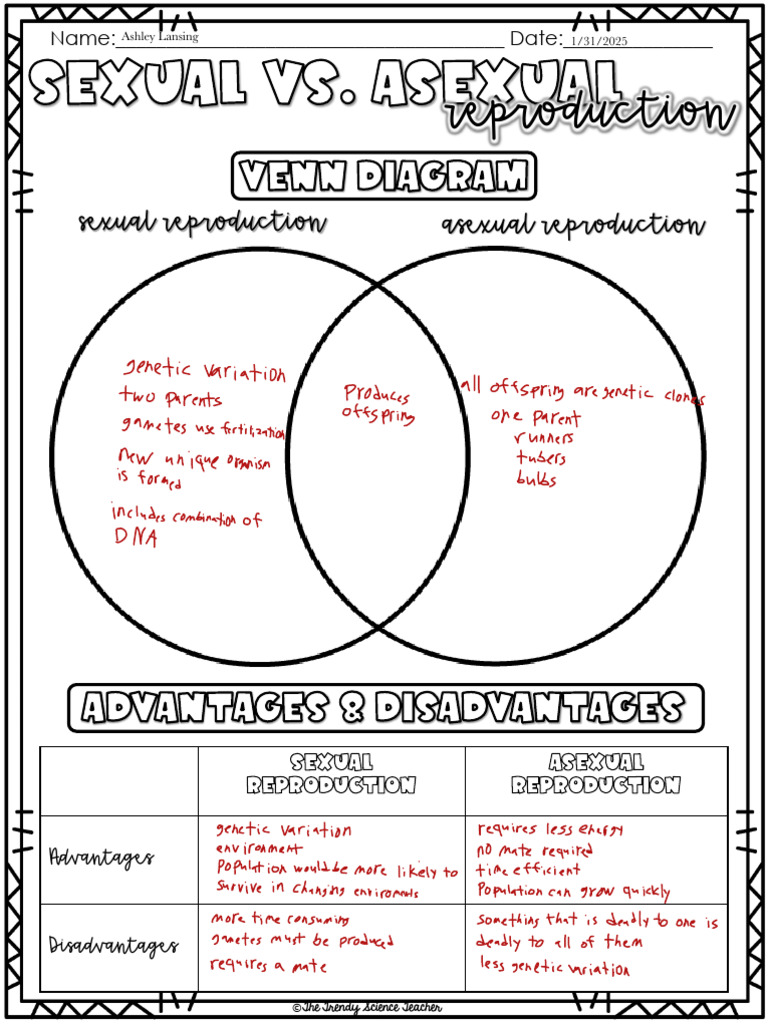 Name: Ashley Lansing Date: 1/31/2025
SEXUAL VS. ASEXUAL
reproduction
VENN DIAGRAM
sexual reproduction
asexual reproduction
genetic variation
two parents
gametes use fertilization
new unique organism
is formed
includes combination of
DNA
Produces
offspring
all offspring are genetic clones
one parent
runners
tubers
bulbs
ADVANTAGES & DISADVANTAGES
SEXUAL
REPRODUCTION
ASEXUAL
REPRODUCTION
Advantages
genetic variation
environment
Population would be more likely to
survive in changing enviroments
requires less energy
no mate required
time efficient
Population can grow quickly
Disadvantages
more time consuming
gametes must be produced
requires a mate
something that is deadly to one is
deadly to all of them
less genetic variation
©The Trendy Science Teacher